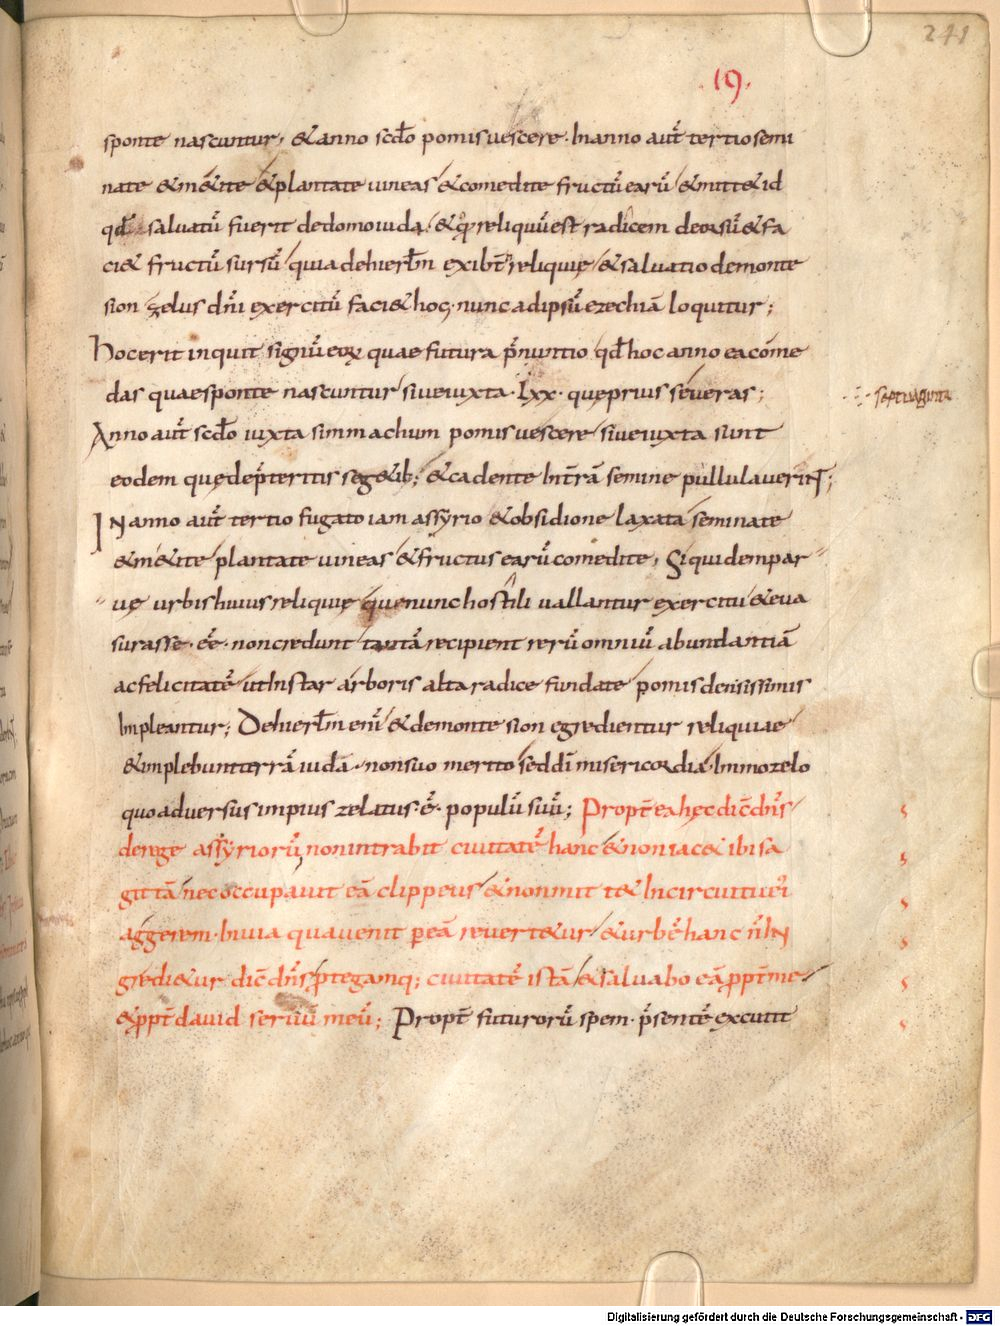 241
.19.
sponte nascuntur, & anno scdo pomis uescere. In anno aut̄ tertio semi
nate & m&ite & plantate uineas & comedite fructū earū & mitt& id
qd̄ saluatū fuerit de domo iuda, & qd̄ reliquū est radicem deorsū & fa
ci& fructū sursū quia de hierl̄m exibt̄ reliquię & saluatio de monte
sion zelus dn̄i exercitū faci& hoc. nunc ad ipsū ezechiā loquitur;
hoc erit inquit signū eoꝝ quae futura p̄nuntio qd̄ hoc anno ea come
das quae sponte nascuntur siue iuxta .lxx. quę prius seueras;
Anno aut̄ scdo iuxta simmachum pomis uescere siue iuxta sunt
eodem quę de p̄teritis seg&ib; & cadente in t̄rā semine pullulauerint;
IN anno aut̄ tertio fugato iam assyrio & obsidione laxata seminate
& m&ite plantate uineas & fructus earū comedite, Siquidem par
uę urbis huius reliquię quę nunc hostili uallantur exercitu & eua
surasse .ee̅. non credunt tantā recipient rerū omniū abundantiā
ac felicitatē ut instar arboris alta radice fundate pomis densissimis
impleantur; De hierl̄m enī & de monte sion egredientur reliquiae
& implebunt terrā iudā. non suo merito sed dī misericordia. Immo zelo
quo aduersus impius zelatus .ē. populū suū; Propt̄ ea hęc dic̄ dn̄s
de rege assyriorū non intrabit ciuitatē hanc & non iac& ibi sa
gittā nec occupauit eā clippeus & non mit t& In circuitu ei
aggerem. In uia qua uenit p eā reuert&ur & urbē hanc n̄ IN
gredi&ur dic̄ dn̄s p̄tegamq; ciuitatē istā & saluabo eā ppt̄ me
& ppt̄ dauid seruū meū; Propt̄ futurorū spem. p̄sentē excutit
septuaginta
Digitalisierung gefördert durch die Deutsche Forschungsgemeinschaft - DFG